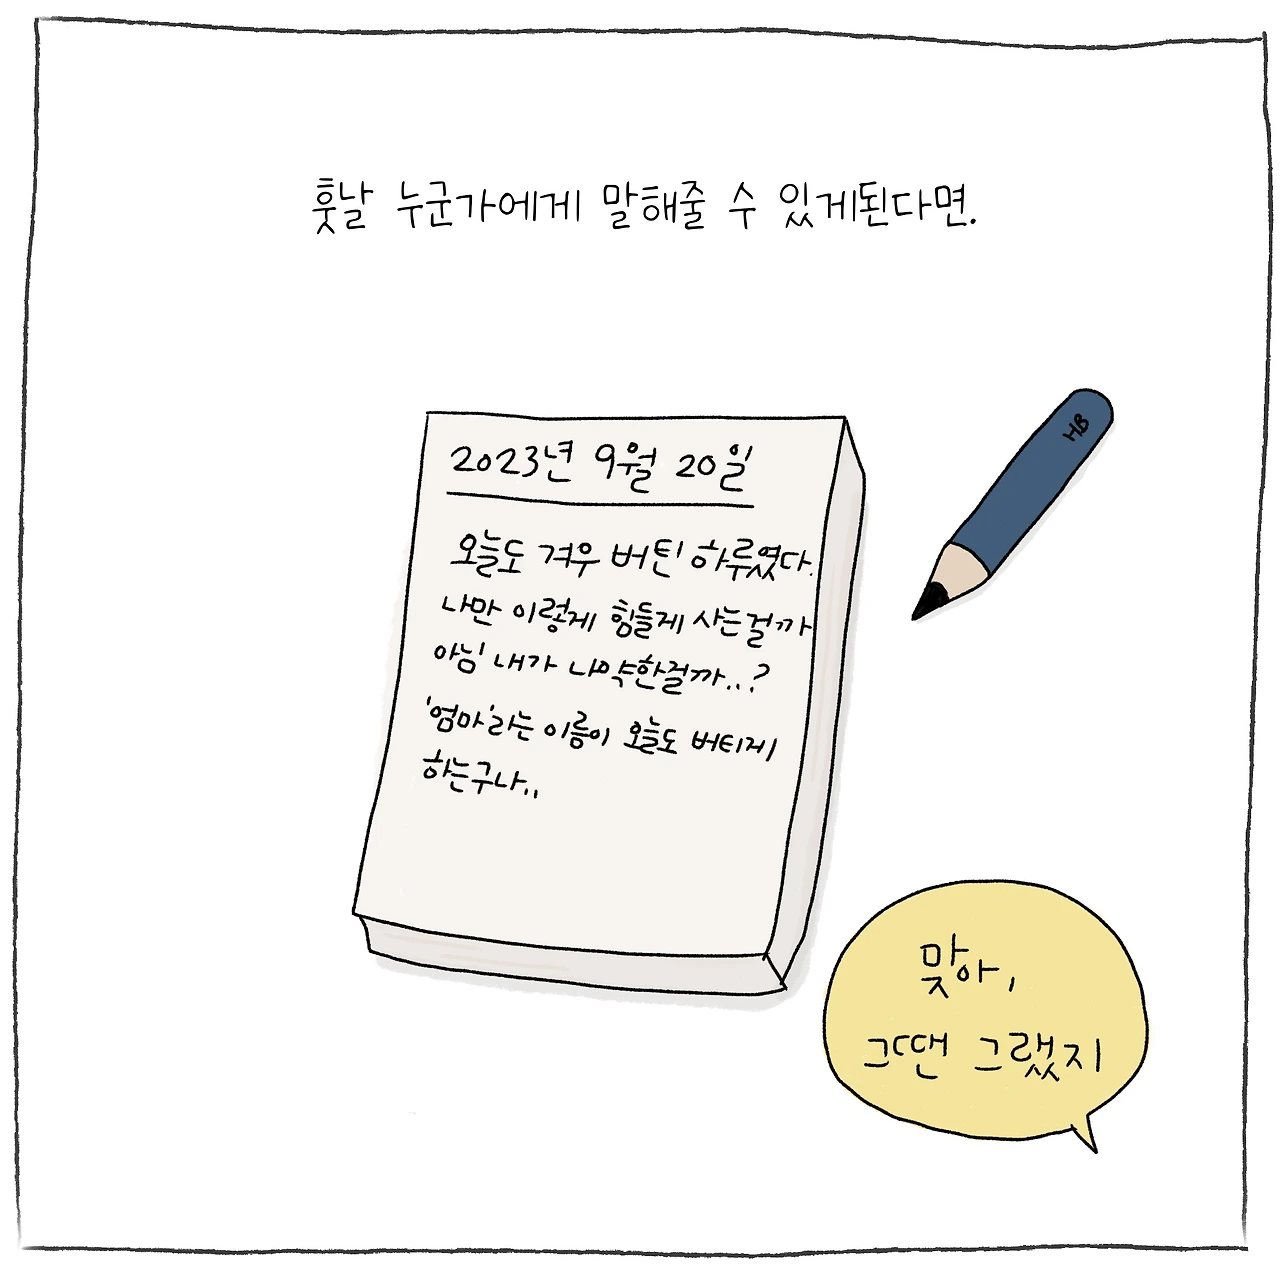 훗날 누군가에게 말해줄 수 있게된다면.
2023년 9월 20일
오늘도 겨우 버틴 하루였다.
나만 이렇게 힘들게 사는걸까
아님 내가 나약한걸까..?
'엄마'라는 이름이 오늘도 버티게
하는구나..
HB
맞아,
그땐 그랬지